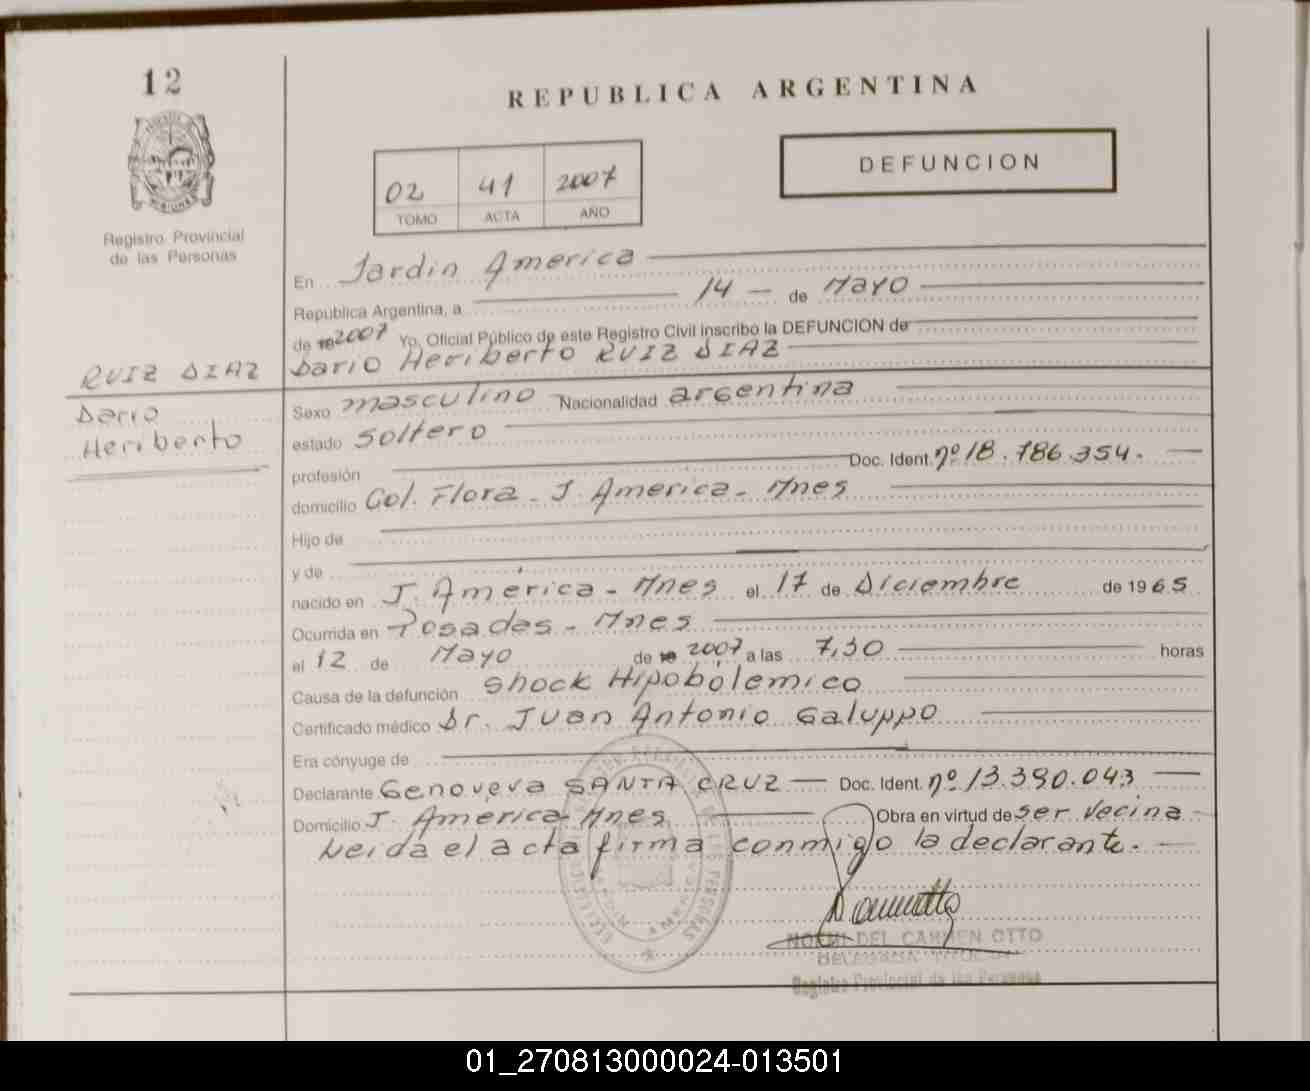 12
REPUBLICA ARGENTINA
DEFUNCION
02 41 2007
TOMO ACTA AÑO
Registro Provincial
de las Personas
En Jardin America
República Argentina, a 14 - de Mayo
de 19 2007 Yo, Oficial Público de este Registro Civil inscribo la DEFUNCION de
RUIZ DIAZ Dario Heriberto RUIZ DIAZ
Dario
Heriberto
Sexo masculino Nacionalidad argentina
estado soltero
profesión Doc. Ident. nº 18.786.354.
domicilio Col. Flora - J. America - Mnes
Hijo de
y de
nacido en J. America - Mnes el 17 de Diciembre de 1965
Ocurrida en Posadas - Mnes
el 12 de Mayo de 19 2007 a las 7,30 horas
Causa de la defunción shock Hipobólemico
Certificado médico Dr. Juan Antonio Galuppo
Era cónyuge de
Declarante Genoveva SANTA CRUZ Doc. Ident. nº 13.390.043
Domicilio J. America - Mnes Obra en virtud de ser vecina
Leida el acta firma conmigo la declarante.
NOEMI DEL CARMEN OTTO
DELEGADA TITULAR
Registro Provincial de las Personas
01_270813000024-013501